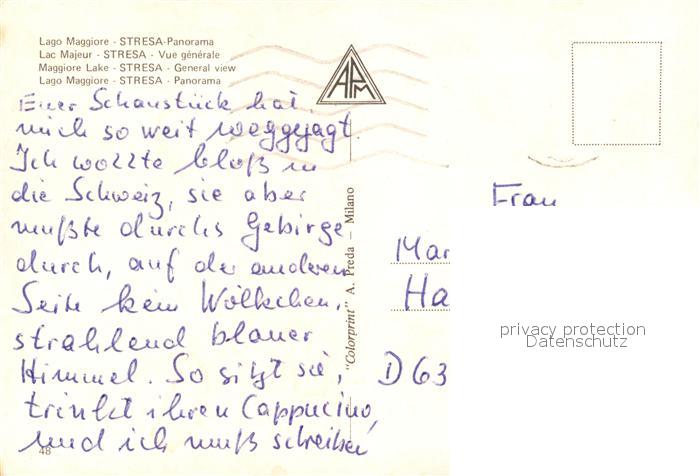 Lago Maggiore - STRESA-Panorama
Lac Majeur - STRESA - Vue générale
Maggiore Lake - STRESA - General view
Lago Maggiore - STRESA - Panorama
APM
Euer Schaustück hat
mich so weit weggejagt.
Ich wollte bloß in
die Schweiz, sie aber
mußte durchs Gebirge
durch, auf der anderen
Seite kein Wölkchen,
strahlend blauer
Himmel. So sitzt sie,
trinkt ihren Cappucino,
und ich muß schreiben
48
"Colorprint" A. Preda - Milano
Frau
Mar
Ha
D 63
privacy protection
Datenschutz